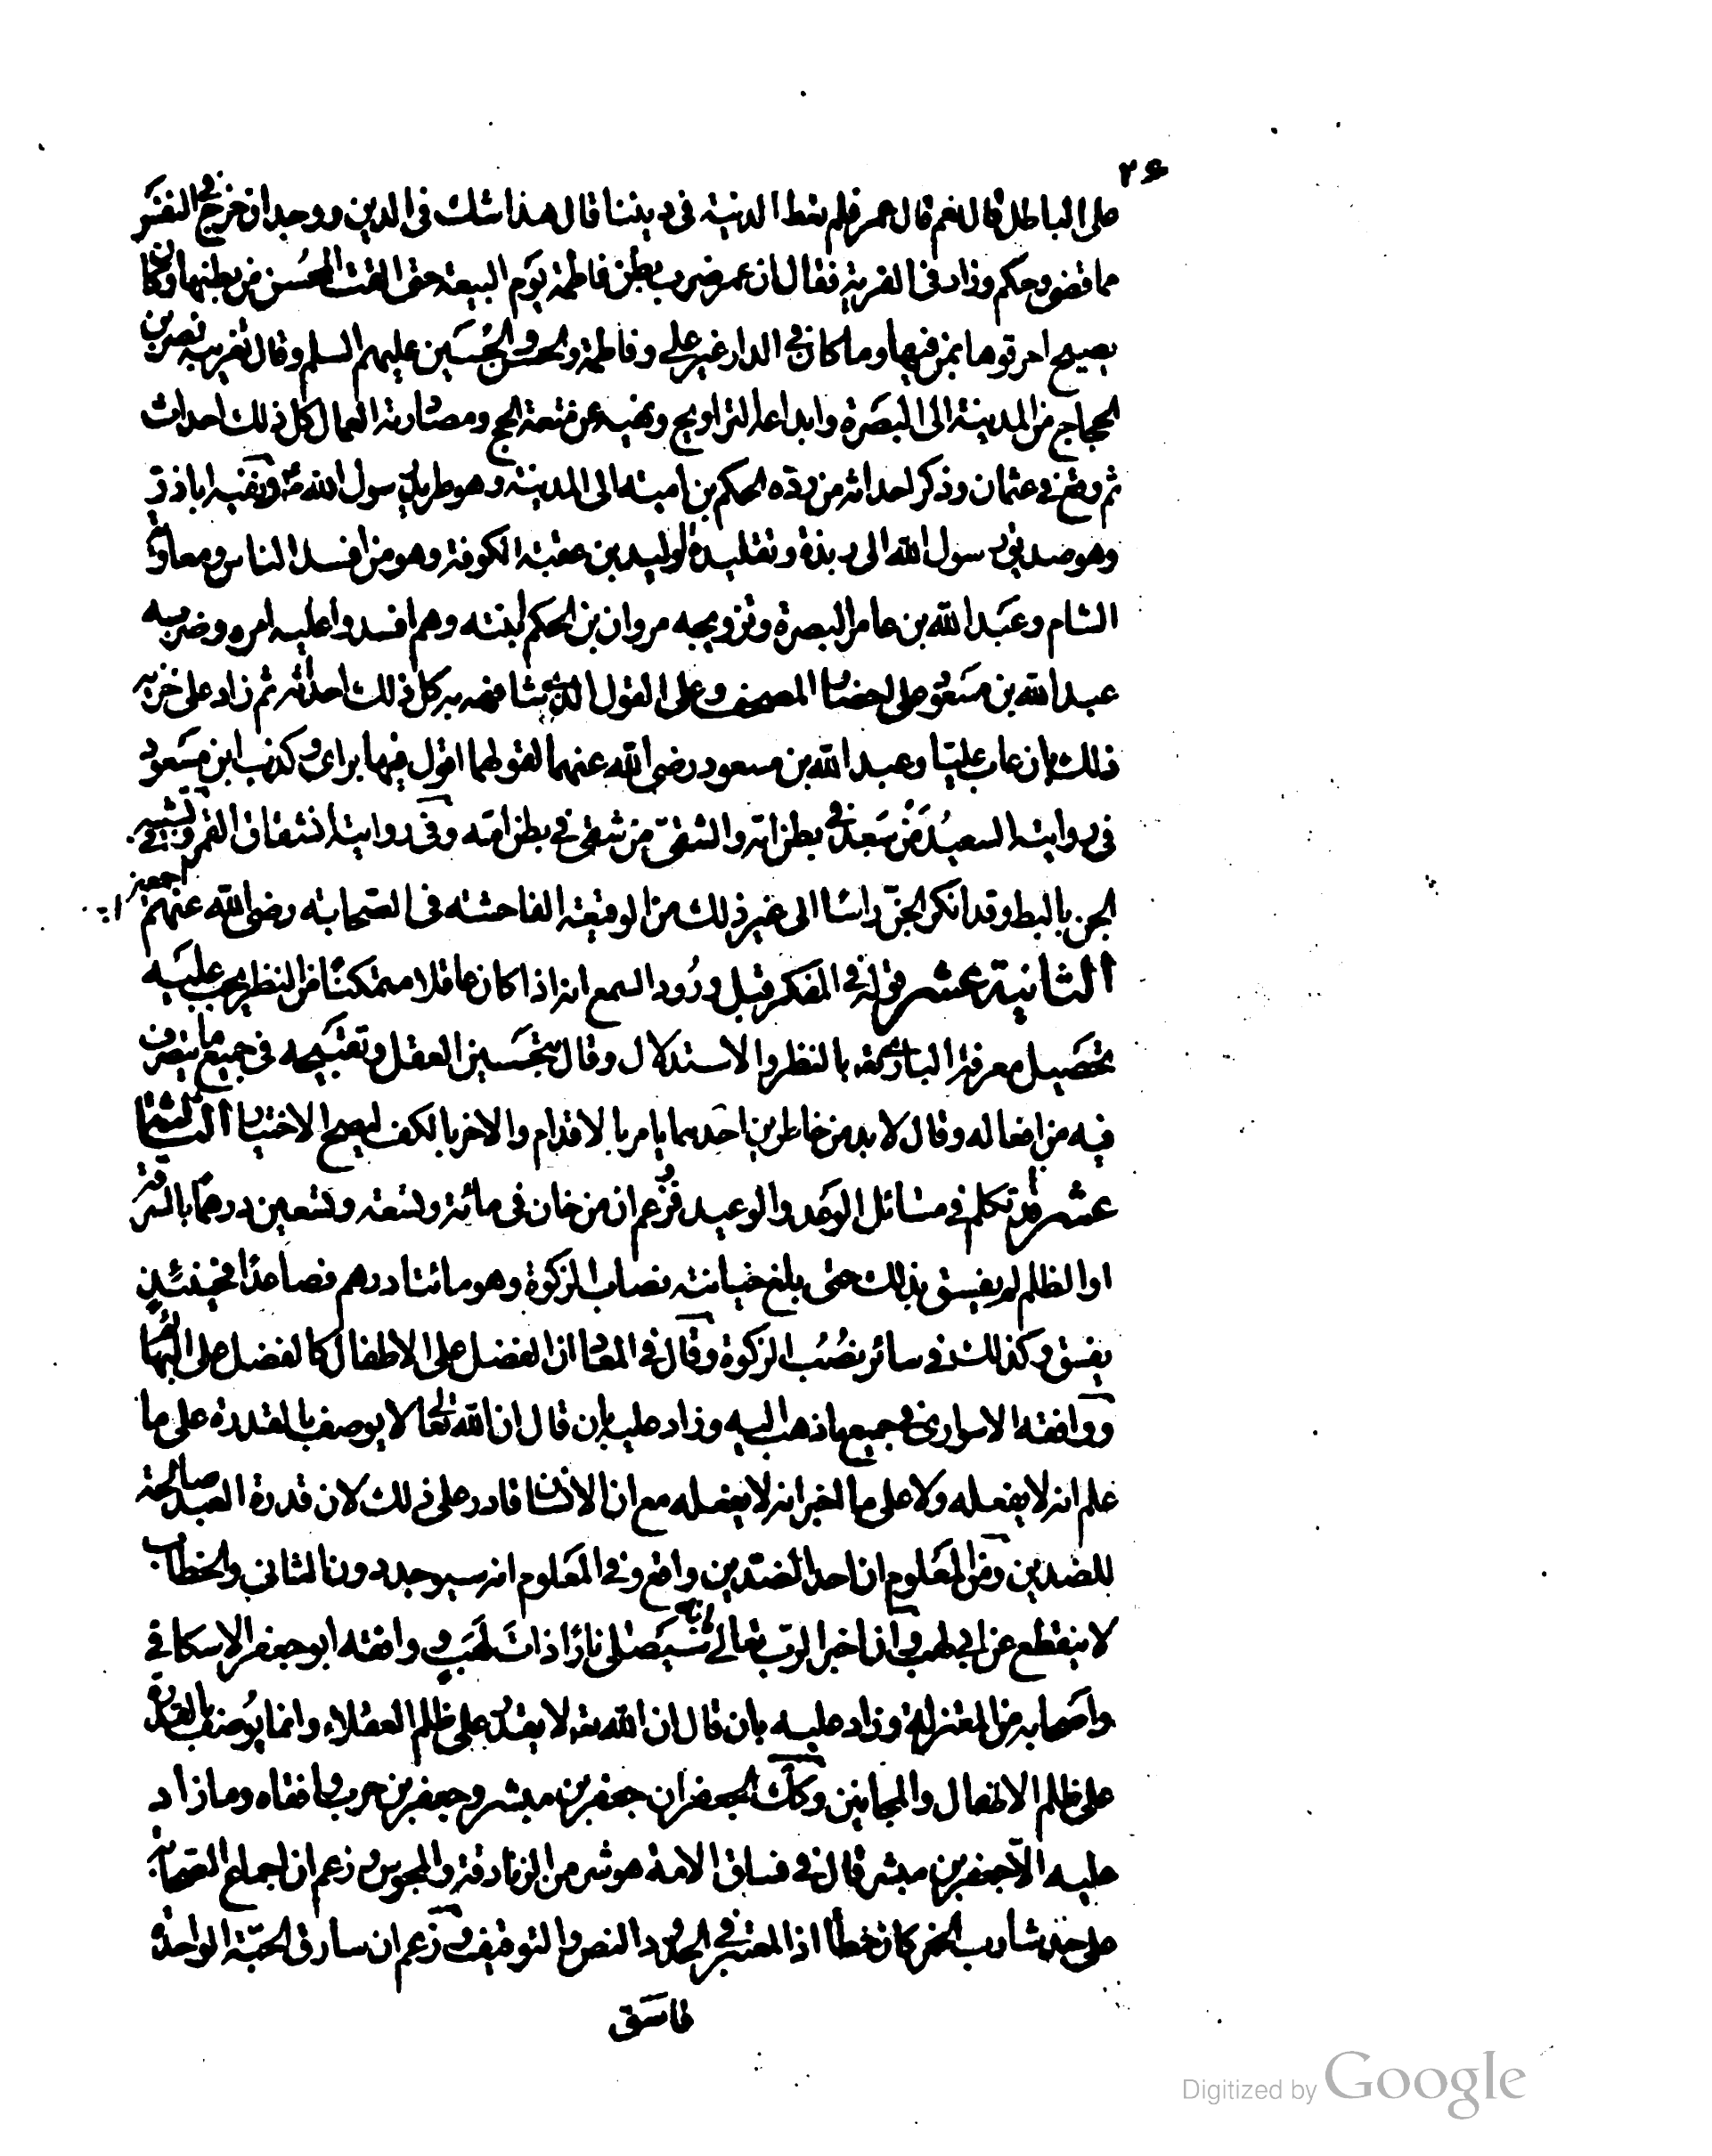 ٢٦
على الباطل قال نعم قال عمر فلم نعط الدنية في ديننا قال هذا شك في الدين ووجدان حرج في النفس
مما قضى وحكم وزاد في الفرية فقال ان عمر ضرب بطن فاطمة يوم البيعة حتى القت المحسن من بطنها وكان
يصيح احرقوها بمن فيها وما كان في الدار غير علي وفاطمة والحسن والحسين عليهم السلم وقال تغريبه نصر بن
الحجاج من المدينة الى البصرة وابداعه التراويح ونهيه عن متعة الحج ومصادرته العمال كل ذلك احداث
ثم وقع في عثمان وذكر احداثه من رده الحكم بن امية الى المدينة وهو طريد رسول الله ونفيه اباذر
وهو صديق رسول الله الى ربذة وتقليده الوليد بن عقبة الكوفة وهو من افسد الناس ومعاوية
الشام وعبد الله بن عامر البصرة وتزويجه مروان بن الحكم ابنته وهم افسدوا عليه امره وضربه
عبد الله بن مسعود على احضار المصحف وعلى القول الذي شافهه به كل ذلك احداثه ثم زاد على خزيه
ذلك بان عاب عليا وعبد الله بن مسعود رضي الله عنهما لقولهما اقول فيها براي وكذب ابن مسعود
في روايته السعيد من سعد في بطن امه والشقي من شقي في بطن امه وفي روايته انشقاق القمر وتشبيه
الجن بالبط وقد انكر الجن راسا الى غير ذلك من الوقيعة الفاحشة في الصحابة رضي الله عنهم اجمعين
الثانية عشر قوله في المفكر قبل ورود السمع انه اذا كان عاقلا متمكنا من النظر يجب عليه
تحصيل معرفة الباري تعه بالنظر والاستدلال وقال بتحسين العقل وتقبيحه في جميع ما يتصرف
فيه من افعاله وقال لا بد من خاطرين احدهما يامر بالاقدام والاخر بالكف ليصح الاختيار الثالثة
عشر قد تكلم في مسائل الوعد والوعيد فزعم ان من خان في مائة وتسعة وتسعين درهما بالسرقة
او الظلم لم يفسق بذلك حتى بلغ خيانته نصاب الزكوة وهو مائتا درهم فصاعدا فحينئذ
يفسق وكذلك في سائر نصب الزكوة وقال في المعاد ان الفضل على الاطفال كالفضل على البهائم
ووافقه الاسواري في جميع ما ذهب اليه وزاد عليه بان قال ان الله تعالى لا يوصف بالقدرة على ما
علم انه لا يفعله ولا على ما اخبر انه لا يفعله مع ان الانسان قادر على ذلك لان قدرة العبد صالحة
للضدين ومن المعلوم ان احد الضدين واقع في المعلوم انه سيوجد دون الثاني والخطاب
لا ينقطع عن ابي لهب وان اخبر الرب تعالى بانه سيصلى نارا ذات لهب ووافقه ابو جعفر الاسكافي
واصحابه من المعتزلة وزاد عليه بان قال ان الله تعه لا يقدر على ظلم العقلاء وانما يوصف بالقدرة
على ظلم الاطفال والمجانين وكذلك الجعفران جعفر بن مبشر وجعفر بن حرب وافقاه وما زاد
عليه الا جعفر بن مبشر قال في فساق الامة هو شر من الزنادقة والمجوس وزعم ان اجماع الصحابة
على حد شارب الخمر كان خطأ اذ المعتبر في الحدود النص والتوقيف وزعم ان سارق الحبة الواحدة
فاسق
Digitized by Google